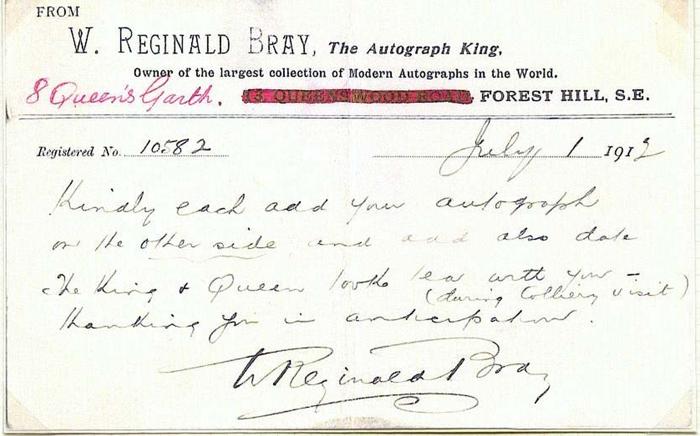 FROM
W. REGINALD BRAY, The Autograph King,
Owner of the largest collection of Modern Autographs in the World.
8 Queen's Garth. 3 QUEENSWOOD ROAD, FOREST HILL, S.E.
Registered No. 10582 July 1 1912
Kindly each add your autograph
on the other side and add also date
The King & Queen took tea with you –
(during Colliery visit)
thanking you in anticipation.
W Reginald Bray